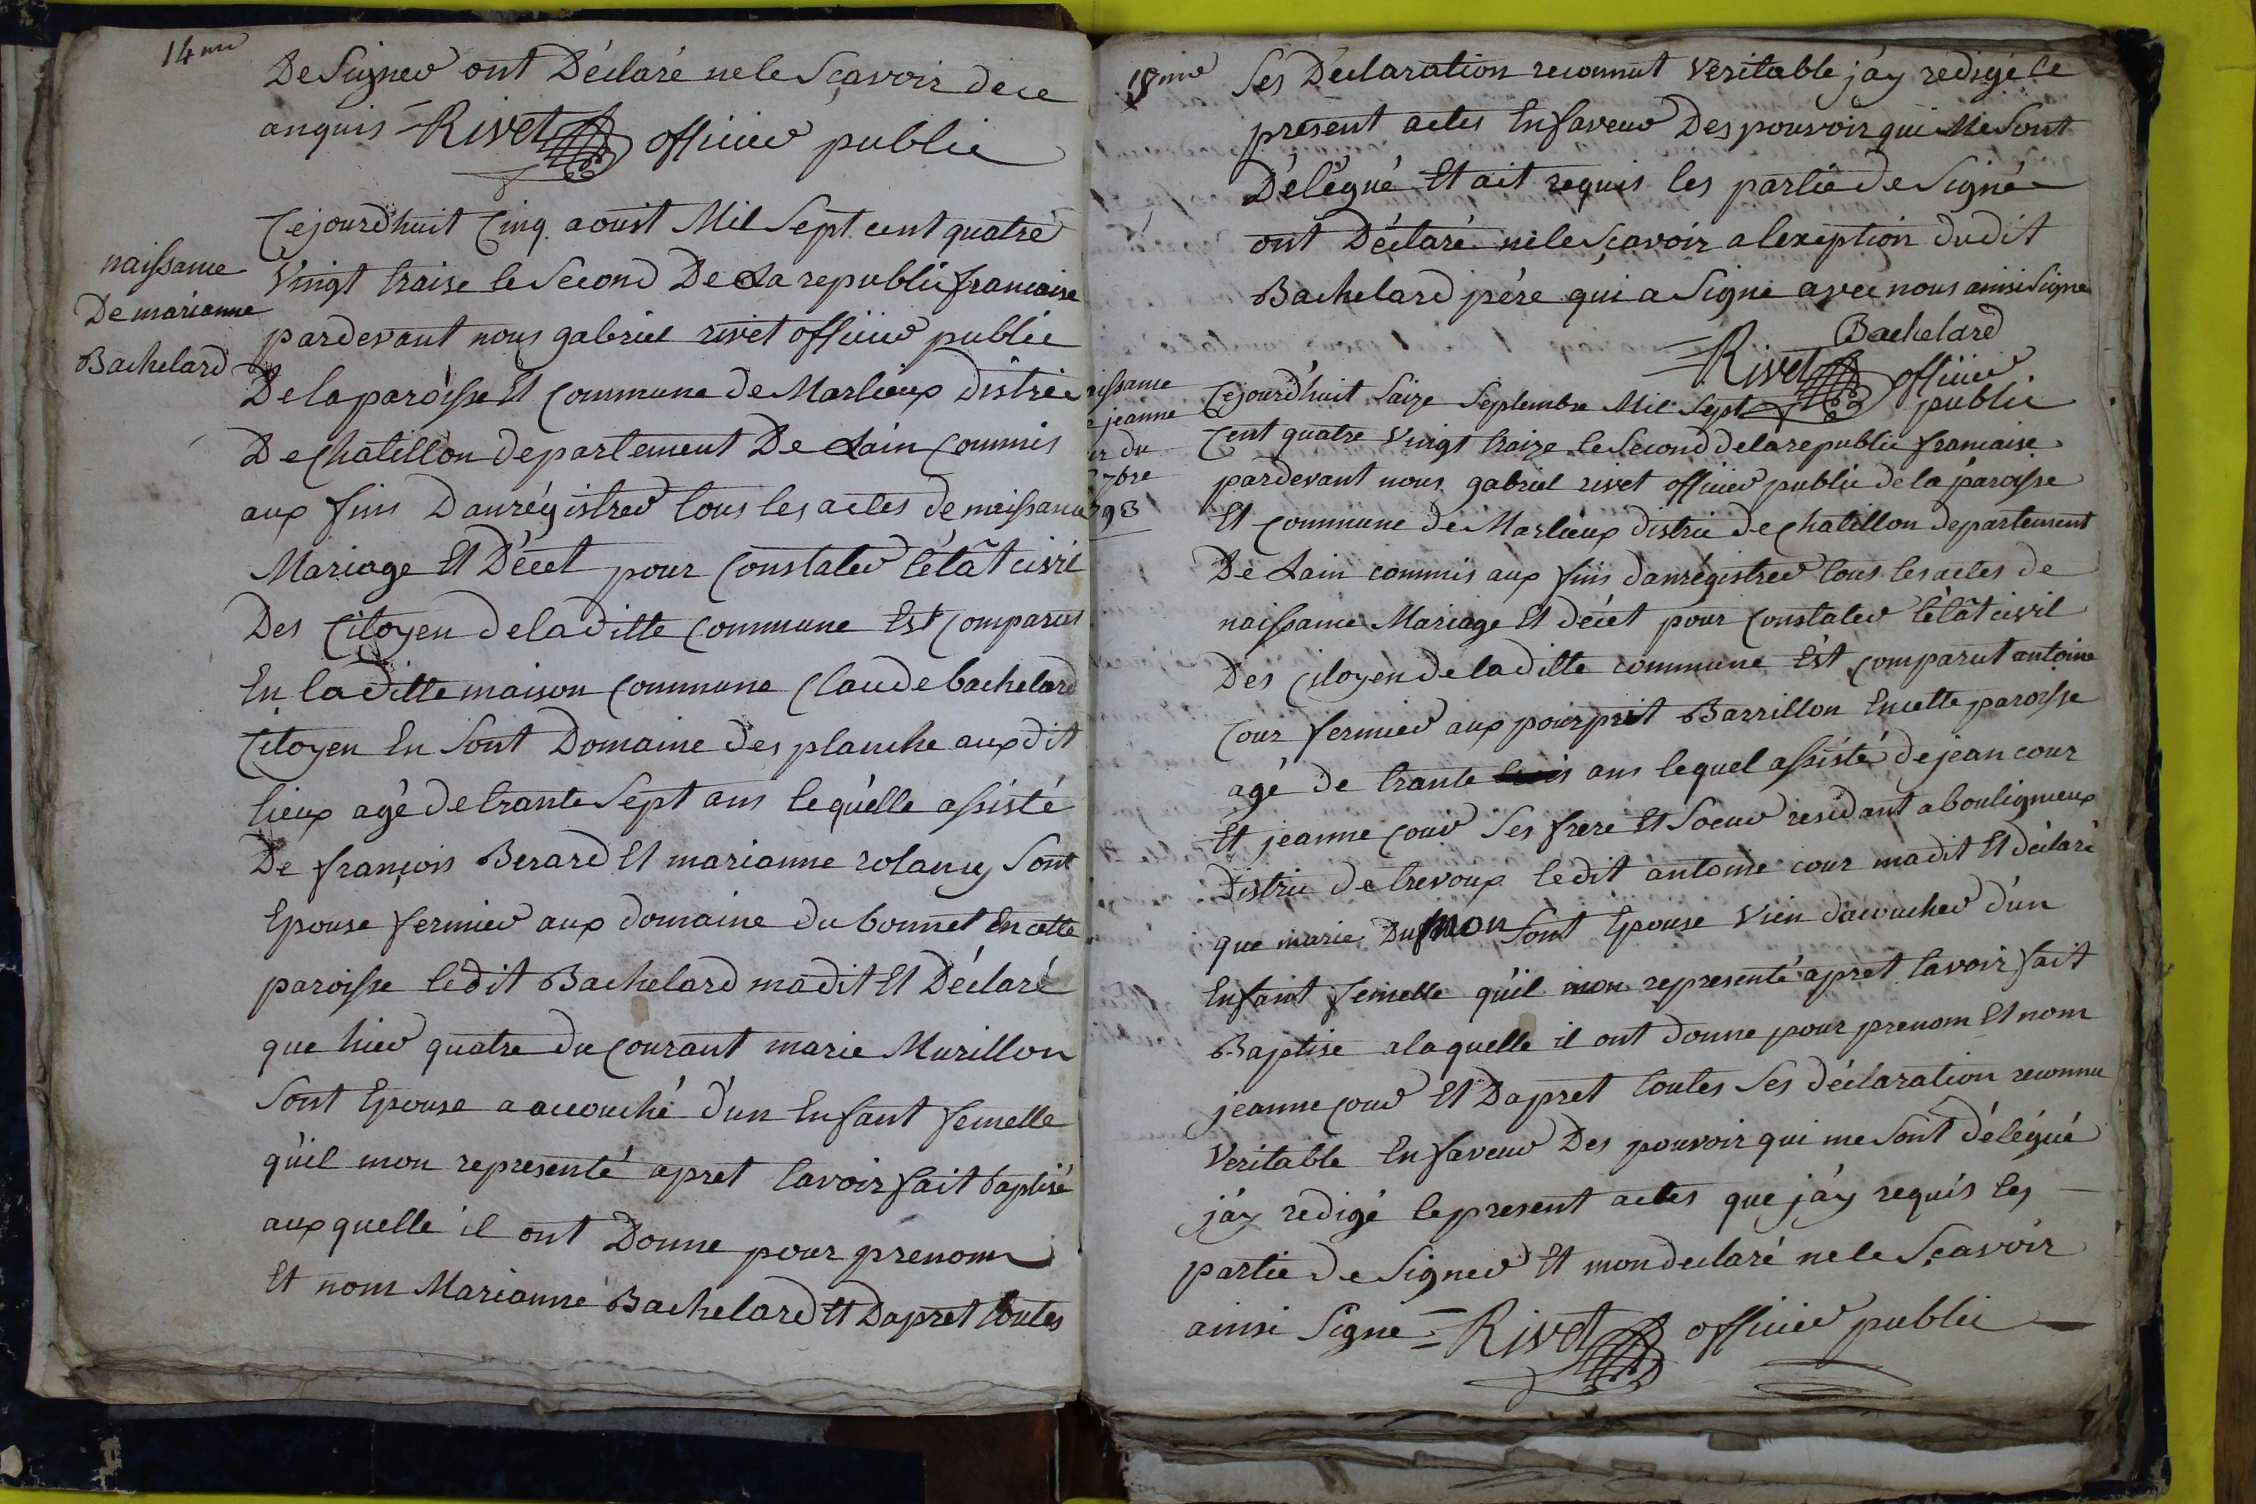 14me
De Signer ont Déclaré ne le Sçavoir de ce
anquis = Rivet officier public
naissance
De marianne
Bachelard
Cejourdhuit Cinq aoust Mil Sept cent quatre
Vingt traise le Second De La republic francaise
pardevant nous gabriel rivet officier public
De la paroisse Et Commune de Marlieux distric
De Chatillon departement De Lain Commis
aux fins Danrégistrer tous les actes de naissance
Mariage Et Décet pour Constater létât civil
Des Citoyen de la ditte Commune Est Comparus
En la ditte maison Commune Claude bachelard
Citoyen En Sont Domaine des planche aux dit
lieux agé de trante Sept ans lequelle assisté
De françois Berard Et marianne rolany Sont
Epouse fermier aux domaine du bonnet En cette
paroisse le dit Bachelard madit Et Déclaré
que hier quatre du Courant marie Murillon
Sont Epouse a acouché d'un Enfant femelle
quil mon representé apret lavoir fait baptisé
aux quelle il ont Donne pour prenom
Et nom Marianne Bachelard Et Dapret toutes
18me
Ses Déclaration reconnut Veritable j'ay redigé le
présent actes En faveur Des pouvoir qui Me Sont
Délégué Et ait requis les partie de Signé
ont Déclaré ne le Sçavoir a lexeption dudit
Bachelard pére qui a Signé avec nous ainsi Signe
Bachelard
= Rivet officier
public
issance
e jeanne
ur du
7bre
93
Cejourdhuit Saize Septembre Mil Sept
Cent quatre Vingt traize le Second de la republic francaise
pardevant nous gabriel rivet officier public de la paroisse
Et Commune de Marlieux distric de Chatillon departement
De Lain commis aux fins danrégistrer tous les actes de
naissance Mariage Et décet pour Constater létât civil
Des Citoyen de la ditte commune Est Comparut antoine
Cour fermier aux pourprit Barrillon En cette paroisse
agé de trante trois ans lequel assisté de jean cour
Et jeanne Cour Ses frere Et Soeur residant a bouligneux
Distric de trevoux le dit antoine cour madit Et déclaré
que marie Dumon Sont Epouse Vien dacoucher d'un
Enfant femelle quil mon representé apret lavoir fait
Baptise a laquelle il ont donne pour prenom Et nom
jeanne Cour Et Dapret toutes Ses déclaration reconnu
Veritable En faveur Des pouvoir qui me Sont délégué
j'ay redigé le present actes que j'ay requis les
partie de Signer Et mon declaré ne le Sçavoir
ainsi Signé = Rivet officier public